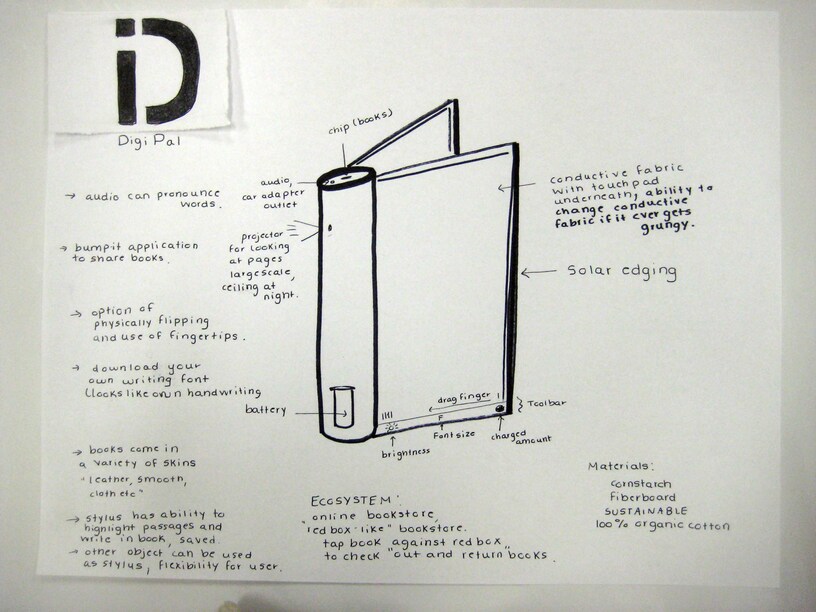 iD
Digi Pal
→ audio can pronounce
words.
→ bumpit application
to share books.
→ option of
physically flipping
and use of fingertips.
→ download your
own writing font
(looks like own handwriting
→ books come in
a variety of skins
"leather, smooth,
cloth etc"
→ stylus has ability to
highlight passages and
write in book, saved.
→ other object can be used
as stylus, flexibility for user.
chip (books)
audio,
car adapter
outlet
projector
for looking
at pages
large scale,
ceiling at
night.
battery
conductive fabric
with touch pad
underneath, ability to
change conductive
fabric if it ever gets
grungy.
Solar edging
drag finger
Toolbar
F
brightness
Font size
charged
amount
ECOSYSTEM:
"online bookstore,
"red box like" bookstore.
tap book against red box"
to check "out and return books.
Materials:
cornstarch
Fiberboard
SUSTAINABLE
100% organic cotton